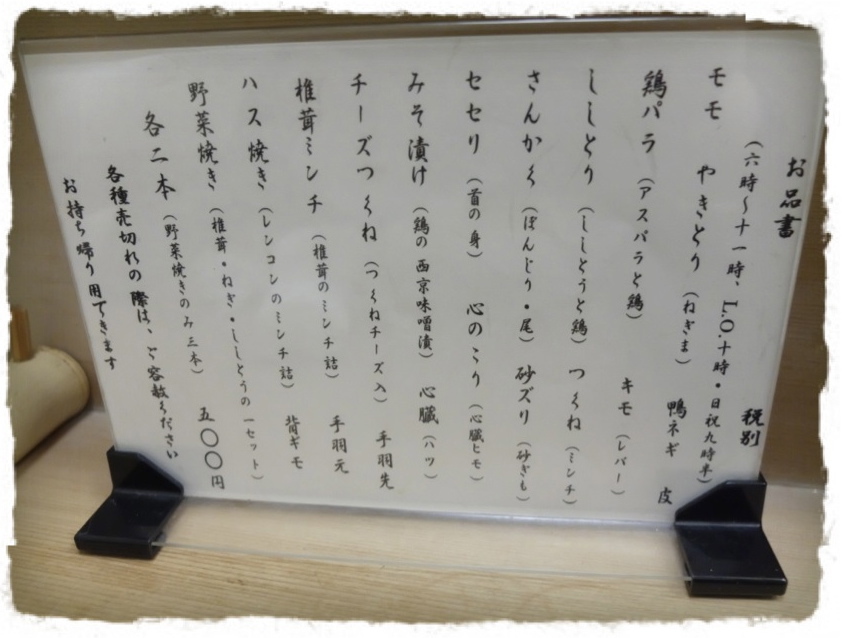 お品書
税別
（六時～十一時、L.O.十時・日祝九時半）
モモ　やきとり（ねぎま）　鴨ネギ　皮
鶏パラ（アスパラと鶏）　キモ（レバー）
ししとり（ししとうと鶏）　つくね（ミンチ）
さんかく（ぼんじり・尾）　砂ズリ（砂ぎも）
セセリ（首の身）　心のこり（心臓ヒモ）
みそ漬け（鶏の西京味噌漬）　心臓（ハツ）
チーズつくね（つくねチーズ入）　手羽先
椎茸ミンチ（椎茸のミンチ詰）　手羽元
ハス焼き（レンコンのミンチ詰）　背ギモ
野菜焼き（椎茸・ねぎ・ししとうの一セット）
各二本（野菜焼きのみ三本）　五〇〇円
各種売切れの際は、ご容赦ください
お持ち帰り用できます